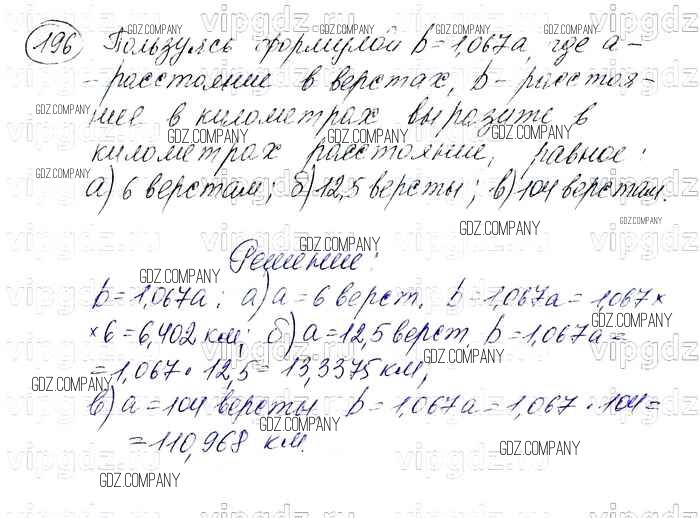 196 Пользуясь формулой b = 1,067a, где a –
- расстояние в верстах, b - расстоя-
ние в километрах выразите в
километрах расстояние, равное:
а) 6 верстам; б) 12,5 версты; в) 104 верстам.
Решение:
b = 1,067a; а) a = 6 верст, b = 1,067a = 1,067 ×
× 6 = 6,402 км; б) a = 12,5 верст, b = 1,067a =
= 1,067 · 12,5 = 13,3375 км;
в) a = 104 версты b = 1,067a = 1,067 · 104 =
= 110,968 км.